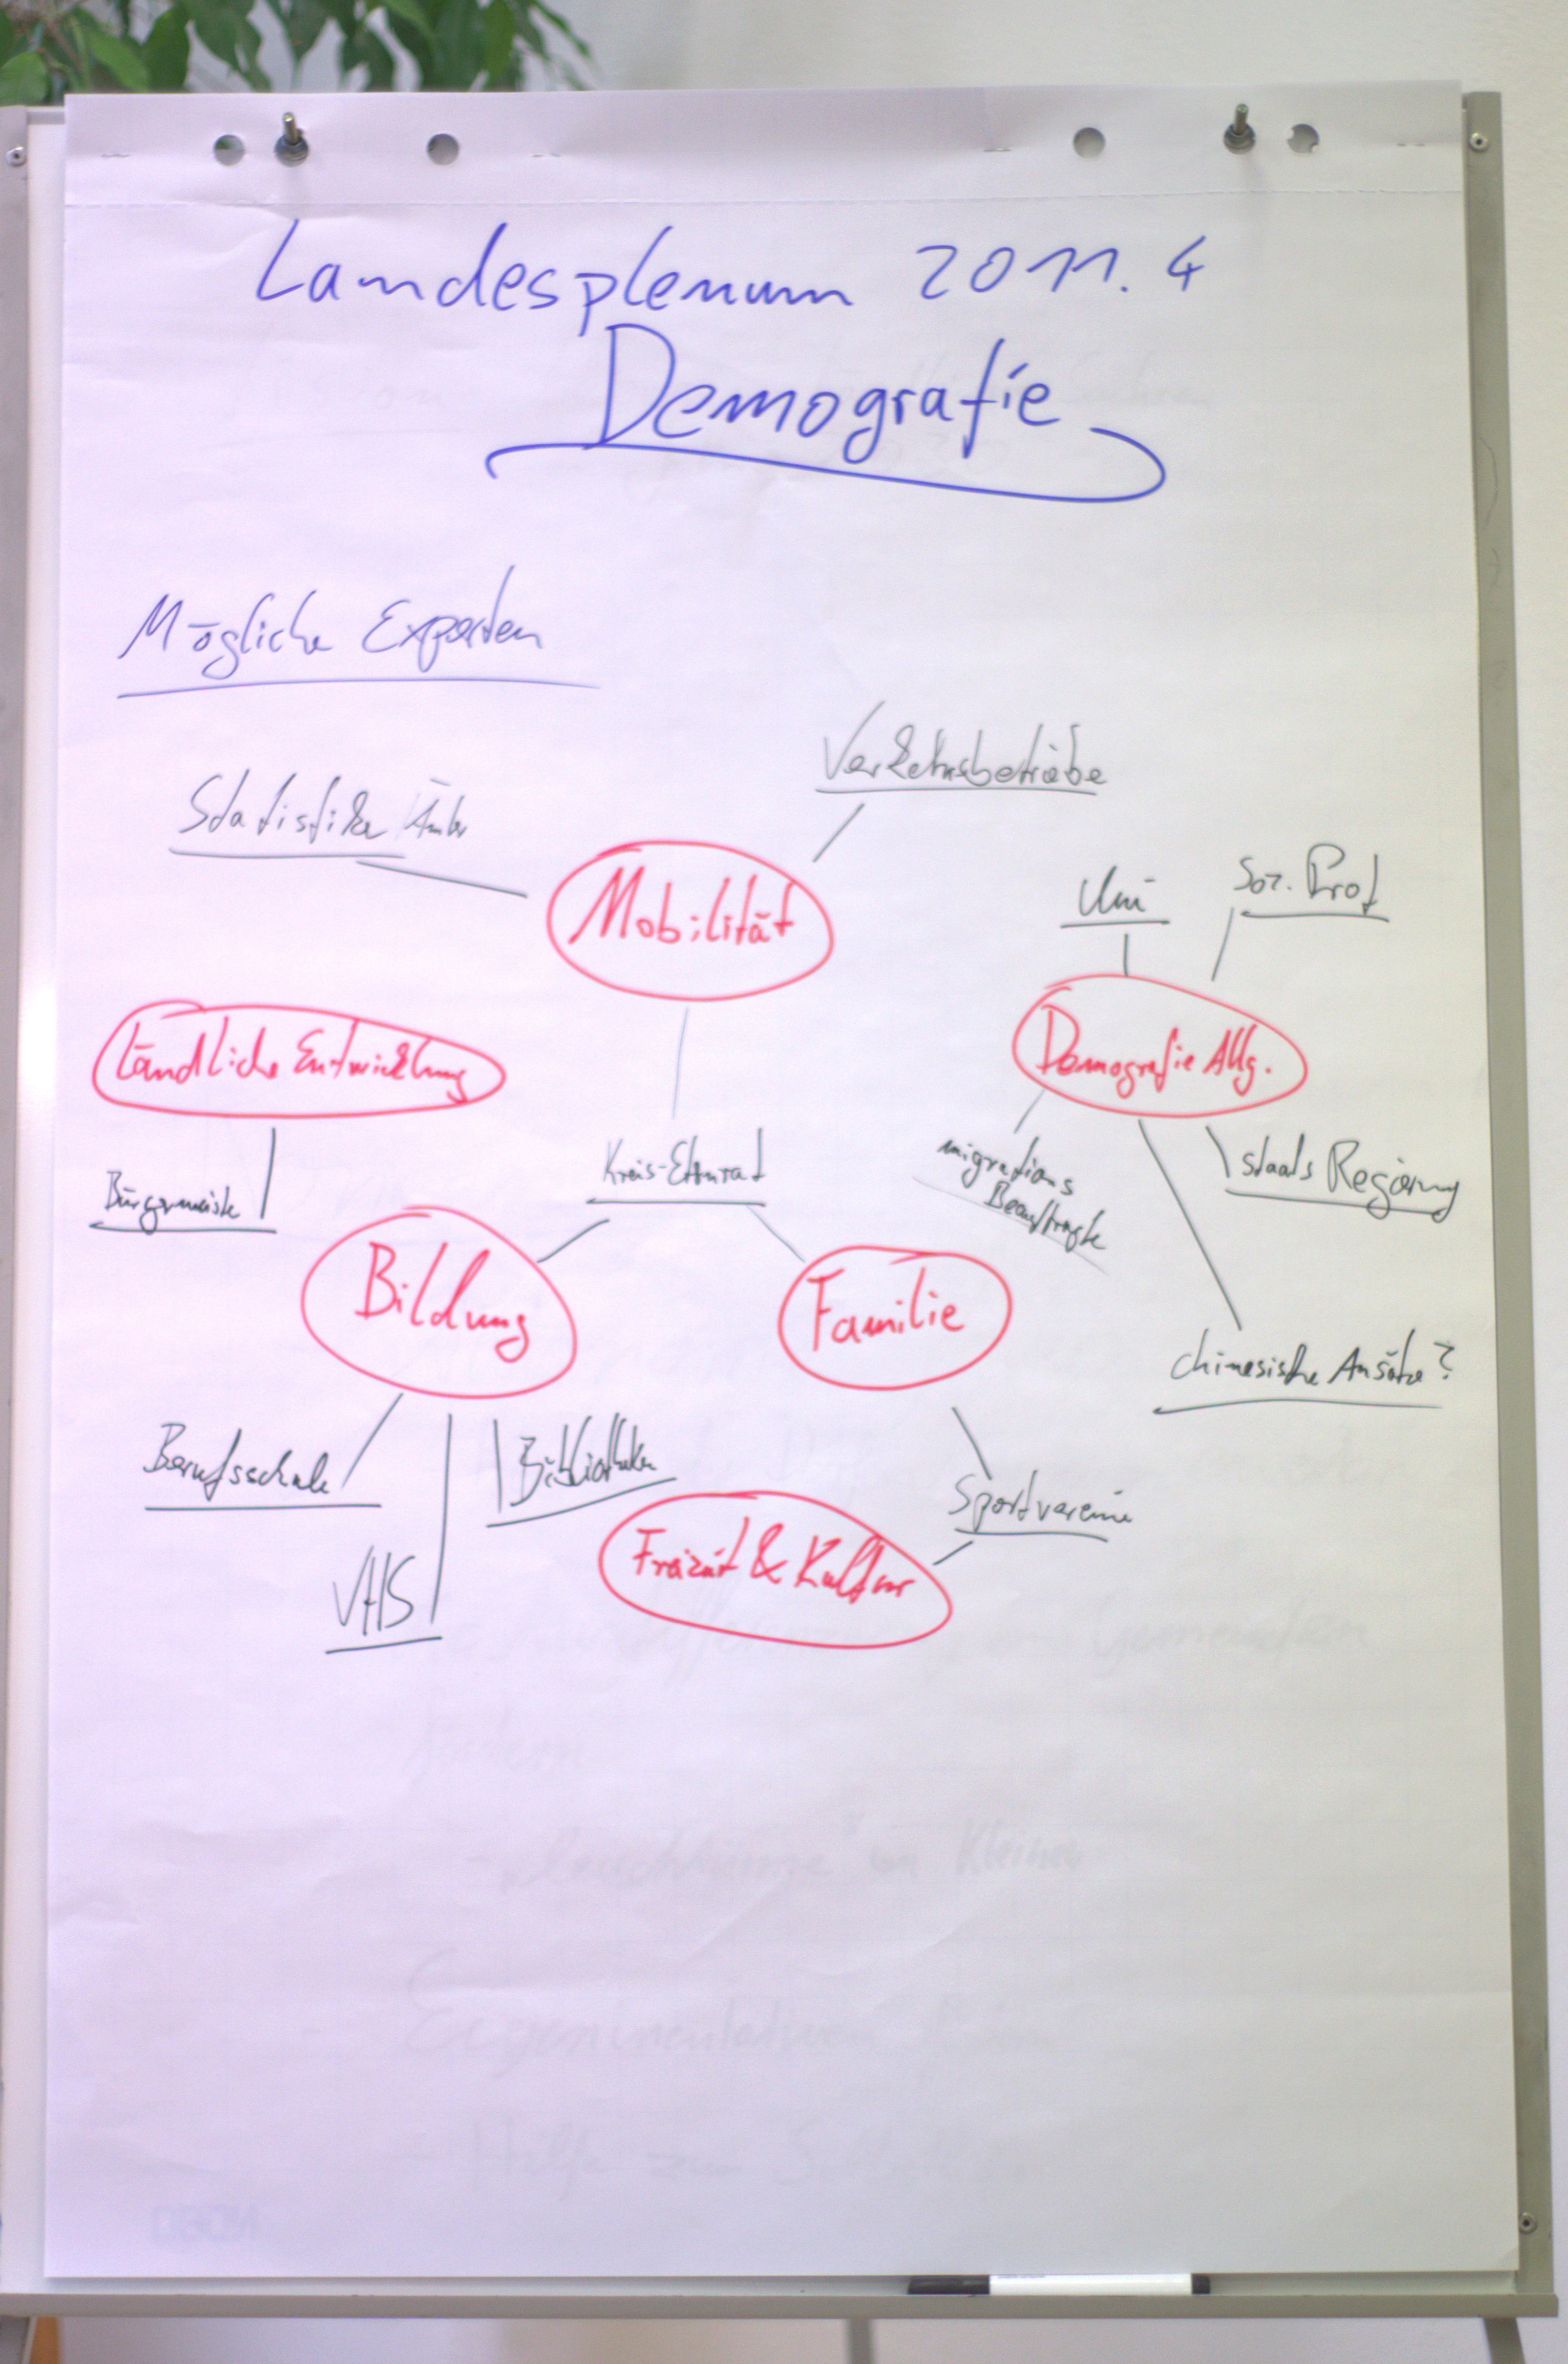 Landesplenum 2011.4
Demografie
Mögliche Experten
Verkehrsbetriebe
Statistiker Ämter
Mobilität
Uni
Soz. Prof
Ländliche Entwicklung
Demografie Allg.
Bürgermeister
Kreis-Elternrat
migrations
Beauftragte
Staats Regierung
Bildung
Familie
chinesische Ansätze?
Berufsschule
Bibliotheken
Sportvereine
VHS
Freizeit & Kultur